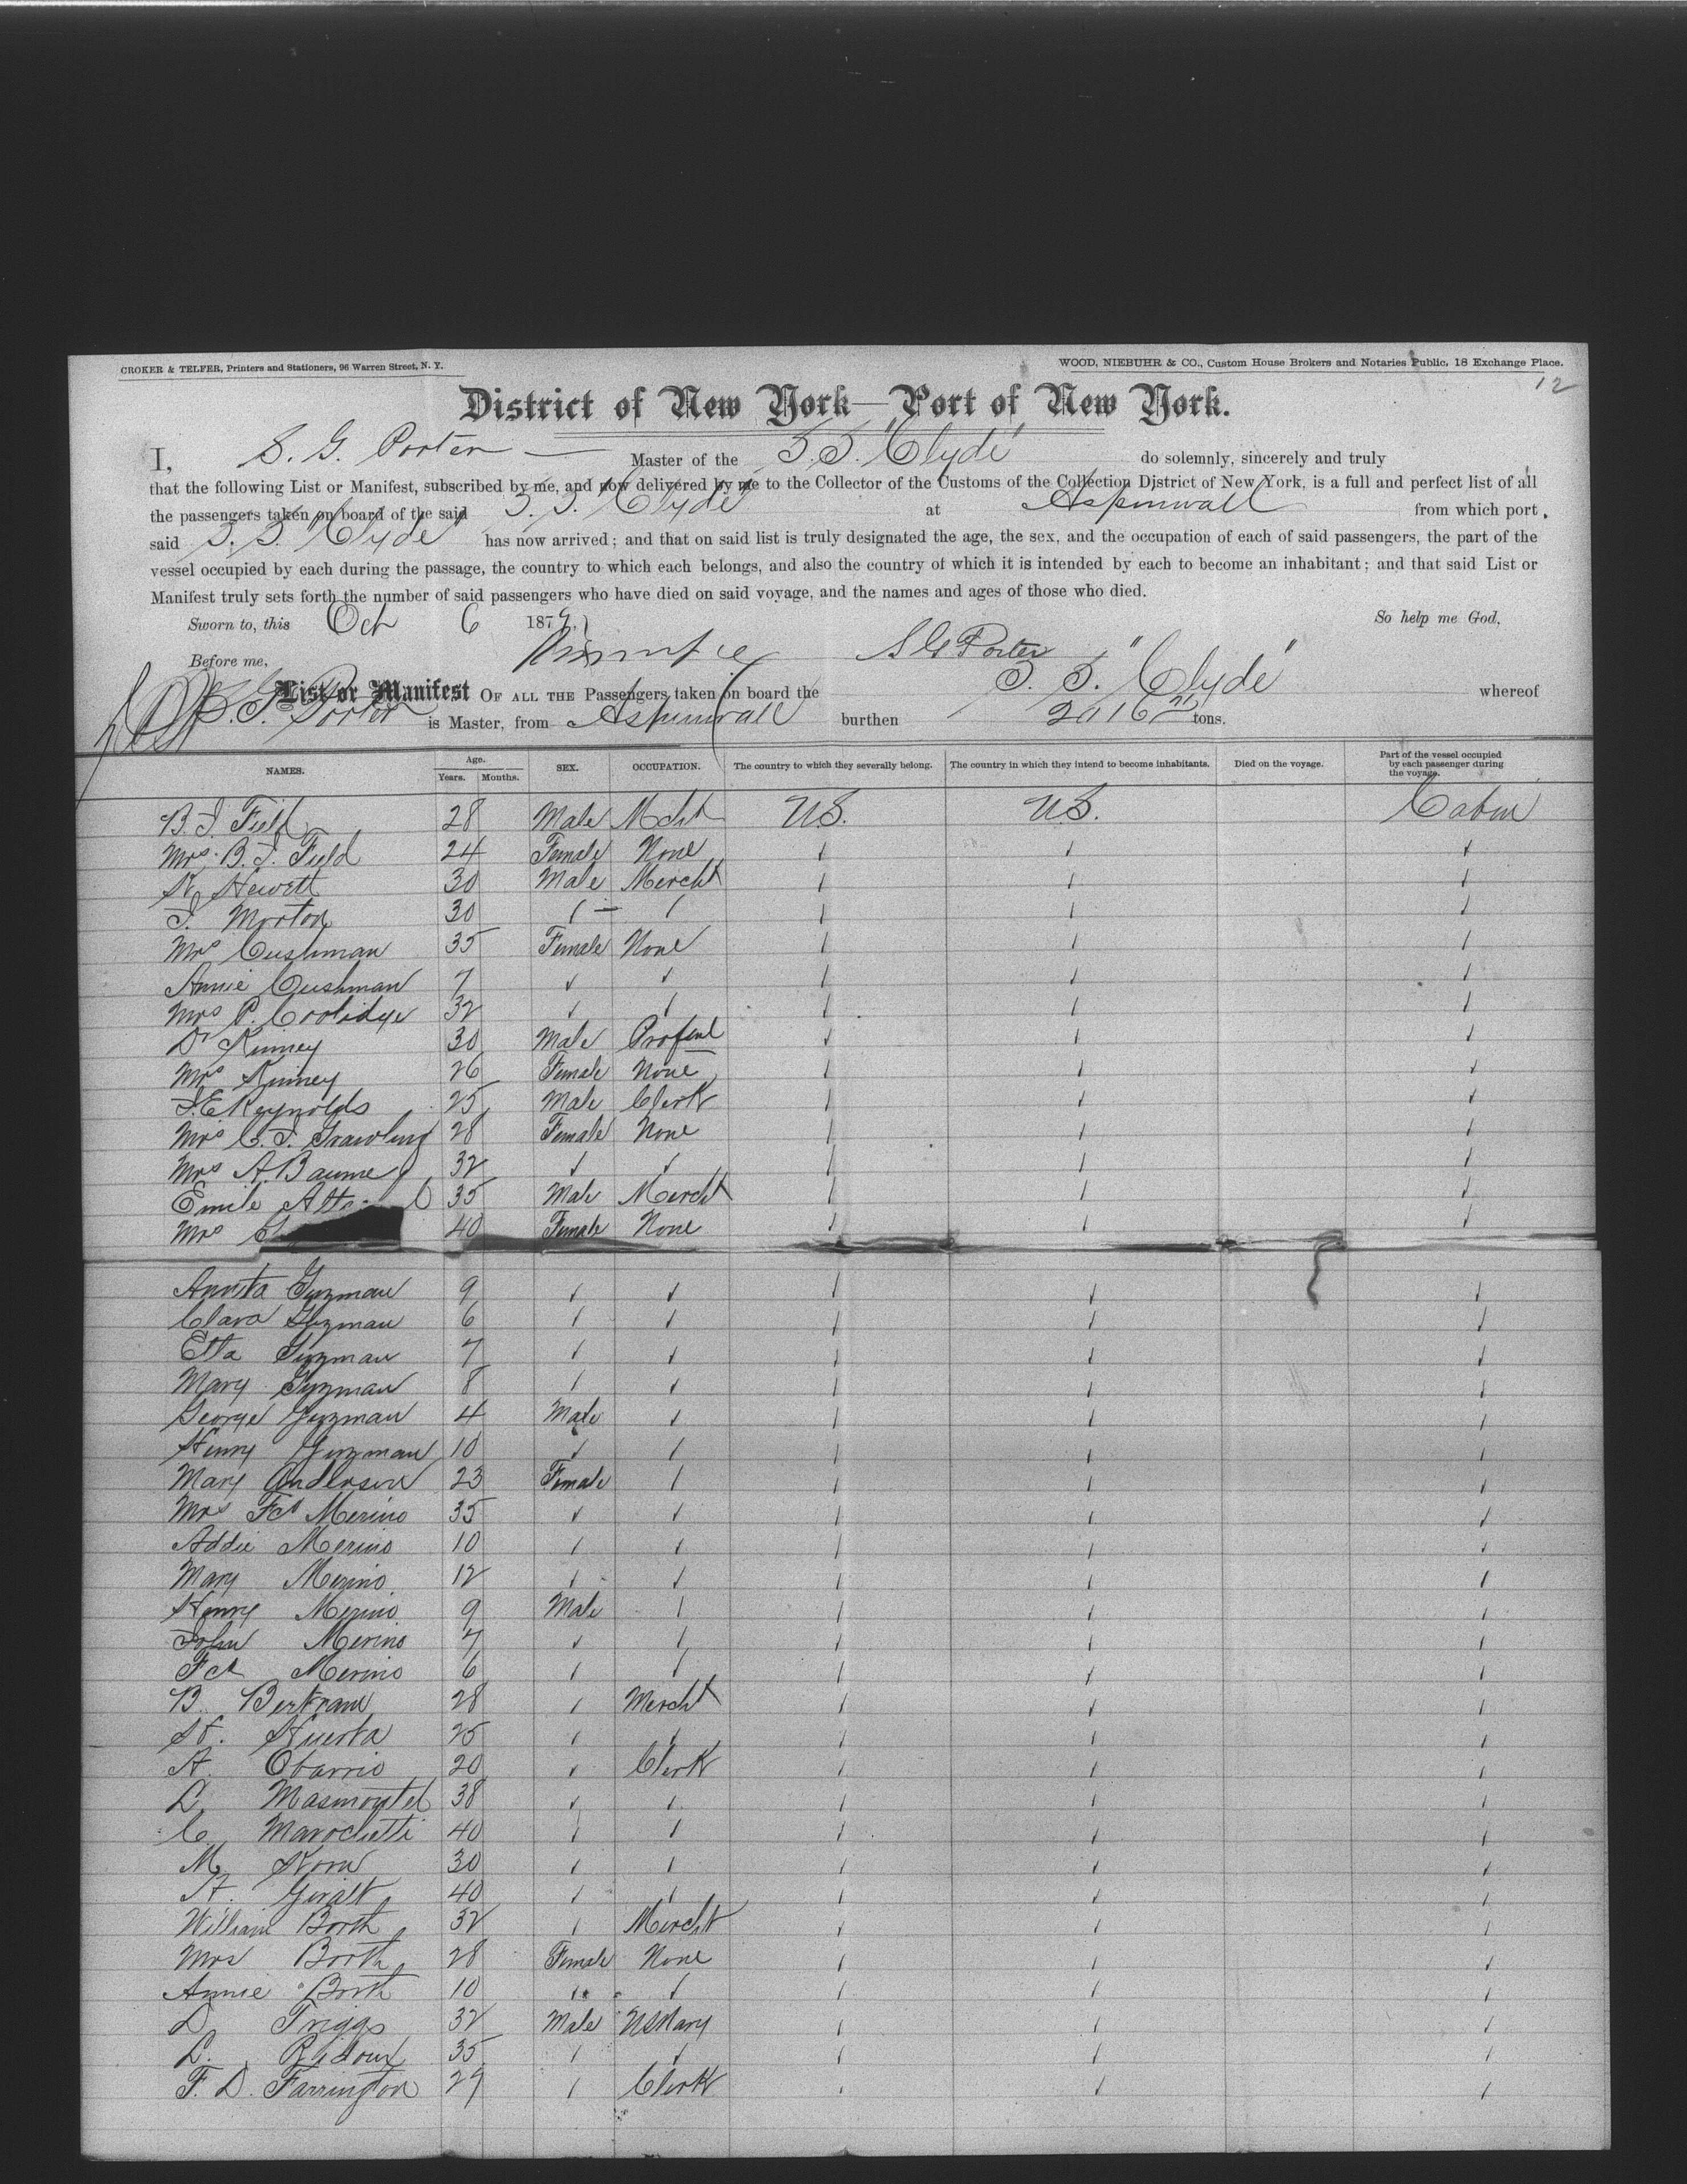 CROKER & TELFER, Printers and Stationers, 96 Warren Street, N. Y.
WOOD, NIEBUHR & CO., Custom House Brokers and Notaries Public, 18 Exchange Place.
12
District of New York—Port of New York.
I, S. G. Porter — Master of the S.S. "Clyde" do solemnly, sincerely and truly
that the following List or Manifest, subscribed by me, and now delivered by me to the Collector of the Customs of the Collection District of New York, is a full and perfect list of all
the passengers taken on board of the said S. S. "Clyde" at Aspinwall from which port
said S. S. "Clyde" has now arrived; and that on said list is truly designated the age, the sex, and the occupation of each of said passengers, the part of the
vessel occupied by each during the passage, the country to which each belongs, and also the country of which it is intended by each to become an inhabitant; and that said List or
Manifest truly sets forth the number of said passengers who have died on said voyage, and the names and ages of those who died.
Sworn to, this Oct 6 1877. So help me God,
Before me, S G Porter
List or Manifest OF ALL THE Passengers taken on board the S. S. "Clyde" whereof
S. G. Porter is Master, from Aspinwall burthen 2016 tons.
NAMES. Age. Years. Months. SEX. OCCUPATION. The country to which they severally belong. The country in which they intend to become inhabitants. Died on the voyage. Part of the vessel occupied by each passenger during the voyage.
B. I. Field 28 Male Mcht U.S. U.S. Cabin
Mrs. B. I. Field 24 Female None
Hewett 30 Male Mercht
Morton 30
Mrs Cushman 35 Female None
Annie Cushman 7
Mrs P. Coolidge 32
Dr Kinney 30 Male Profsnl
Mrs Kinney 26 Female None
Reynolds 25 Male Clerk
Mrs 28 Female None
Mrs A. Baume 32
Emile 35 Male Mercht
Mrs 40 Female None
Anvita Guzman 9
Clara Guzman 6
Etta Guzman 7
Mary Guzman 8
George Guzman 4 Male
Henry Guzman 10
Mary Anderson 23 Female
Mrs Fco Merino 35
Addie Merino 10
Mary Merino 12
Henry Merino 9 Male
John Merino 7
Fco Merino 6
B. Bertram 28 Mercht
Huerta 25
A. Obarrio 20 Clerk
L. Masmontel 38
C. Marochetti 40
M. Korn 30
Giralt 40
William Booth 32 Mercht
Mrs Booth 28 Female None
Annie Booth 10
D. Triggs 32 Male US Navy
L. 35
F. D. Farrington 29 Clerk